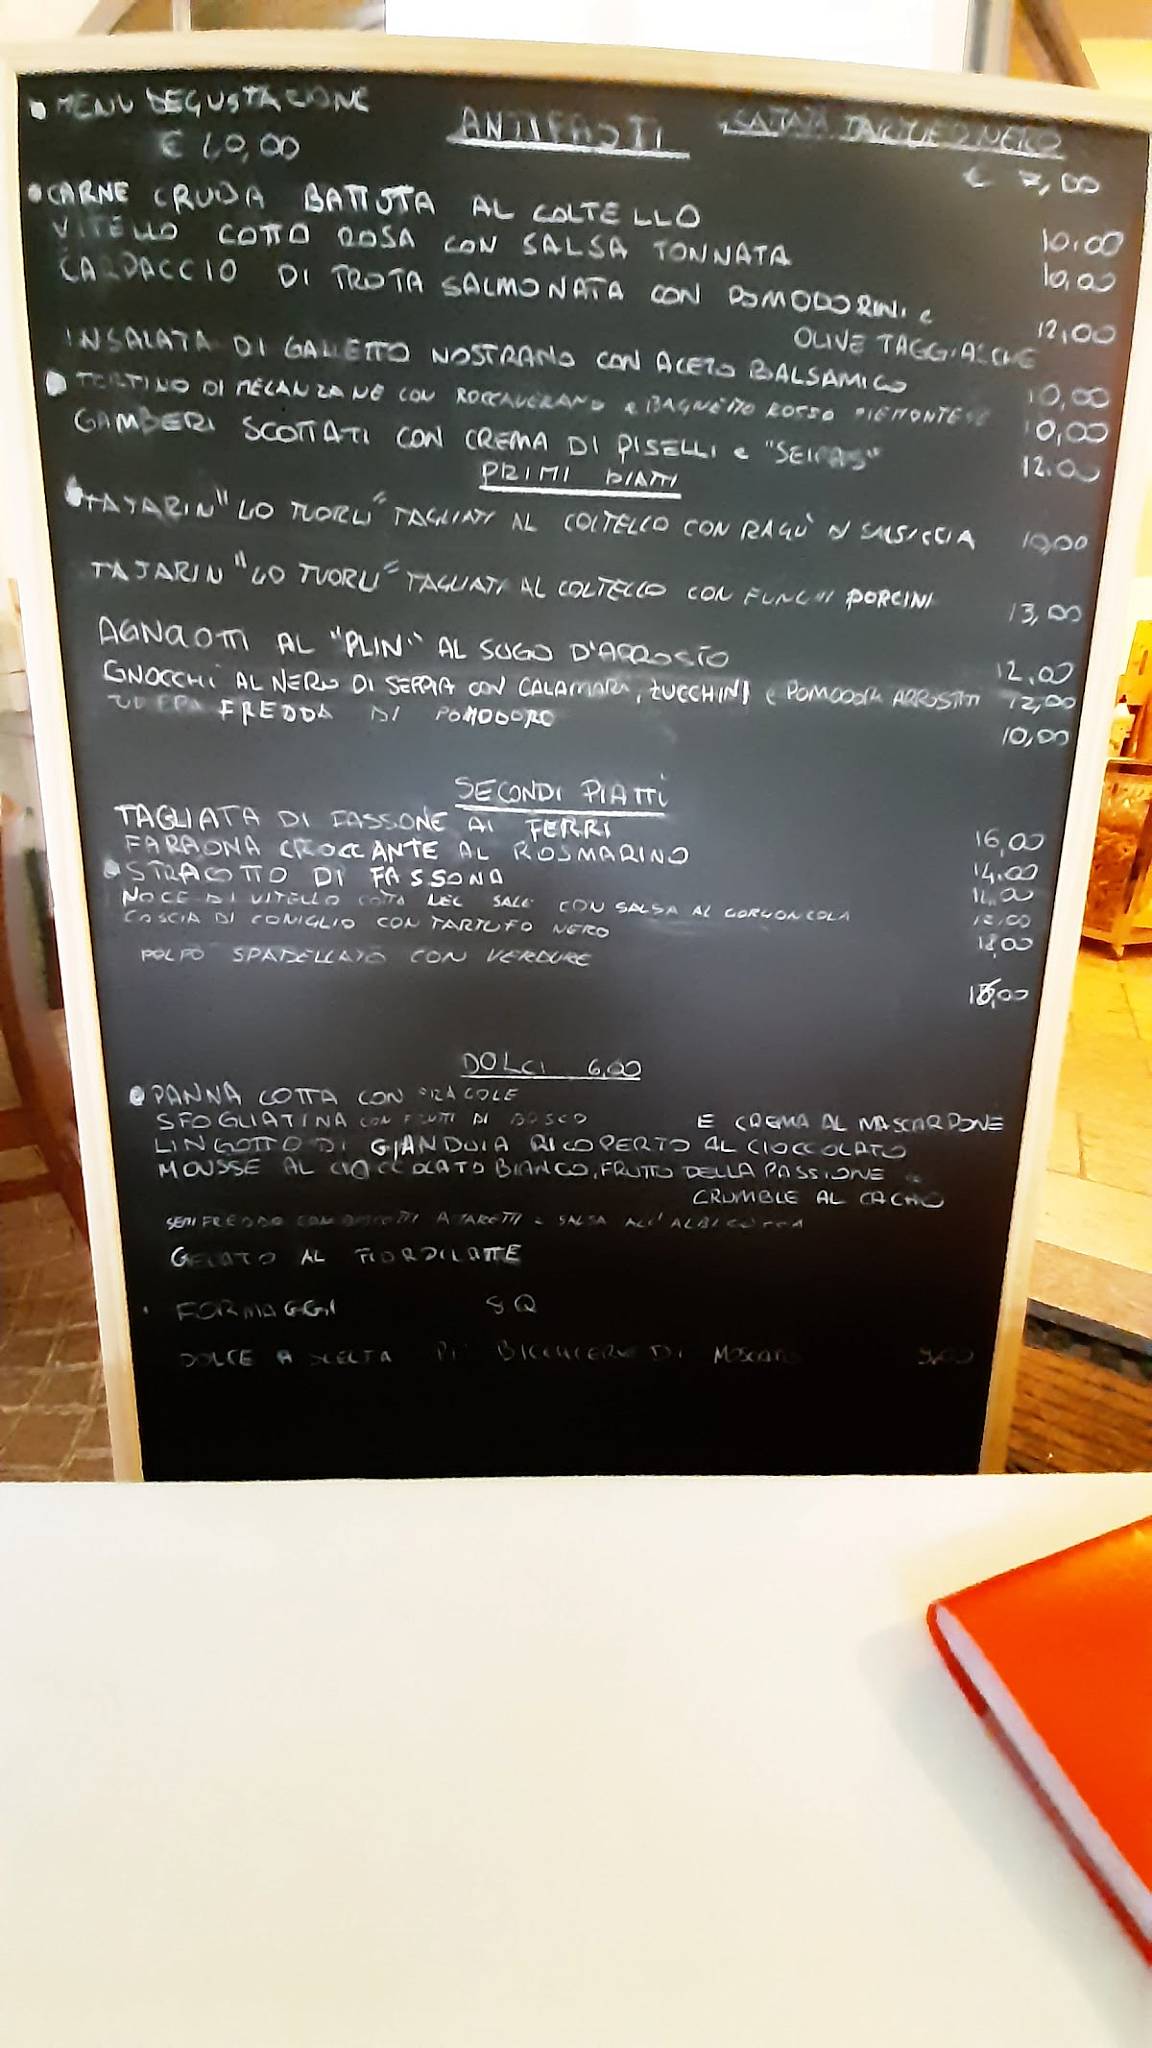 • MENU DEGUSTAZIONE
€ 40,00
ANTIPASTI
TARTUFO NERO
€ 7,00
• CARNE CRUDA BATTUTA AL COLTELLO 10,00
VITELLO COTTO ROSA CON SALSA TONNATA 10,00
CARPACCIO DI TROTA SALMONATA CON POMODORINI e
OLIVE TAGGIASCHE 12,00
INSALATA DI GALLETTO NOSTRANO CON ACETO BALSAMICO 10,00
• TORTINO DI MELANZANE CON ROCCAVERANO e BAGNETTO ROSSO PIEMONTESE 10,00
GAMBERI SCOTTATI CON CREMA DI PISELLI e 12,00
PRIMI PIATTI
• TAJARIN "40 TUORLI" TAGLIATI AL COLTELLO CON RAGÙ DI SALSICCIA 10,00
TAJARIN "40 TUORLI" TAGLIATI AL COLTELLO CON FUNGHI PORCINI 13,00
AGNOLOTTI AL "PLIN" AL SUGO D'ARROSTO 12,00
GNOCCHI AL NERO DI SEPPIA CON CALAMARI, ZUCCHINI e POMODORI ARROSTITI 12,00
ZUPPA FREDDA DI POMODORO 10,00
SECONDI PIATTI
TAGLIATA DI FASSONE AI FERRI 16,00
FARAONA CROCCANTE AL ROSMARINO 14,00
• STRACOTTO DI FASSONA 14,00
NOCE DI VITELLO COTTA NEL SALE CON SALSA AL GORGONZOLA
COSCIA DI CONIGLIO CON TARTUFO NERO 18,00
POLPO SPADELLATO CON VERDURE
DOLCI 6,00
• PANNA COTTA CON FRAGOLE
SFOGLIATINA CON FRUTTI DI BOSCO E CREMA AL MASCARPONE
LINGOTTO DI GIANDUIA RICOPERTO AL CIOCCOLATO
MOUSSE AL CIOCCOLATO BIANCO, FRUTTO DELLA PASSIONE e
CRUMBLE AL CACAO
SEMIFREDDO CON BISCOTTI AMARETTI e SALSA ALL'ALBICOCCA
GELATO AL FIORDILATTE
FORMAGGI
DOLCE A SCELTA PIÙ BICCHIERE DI MOSCATO 9,00